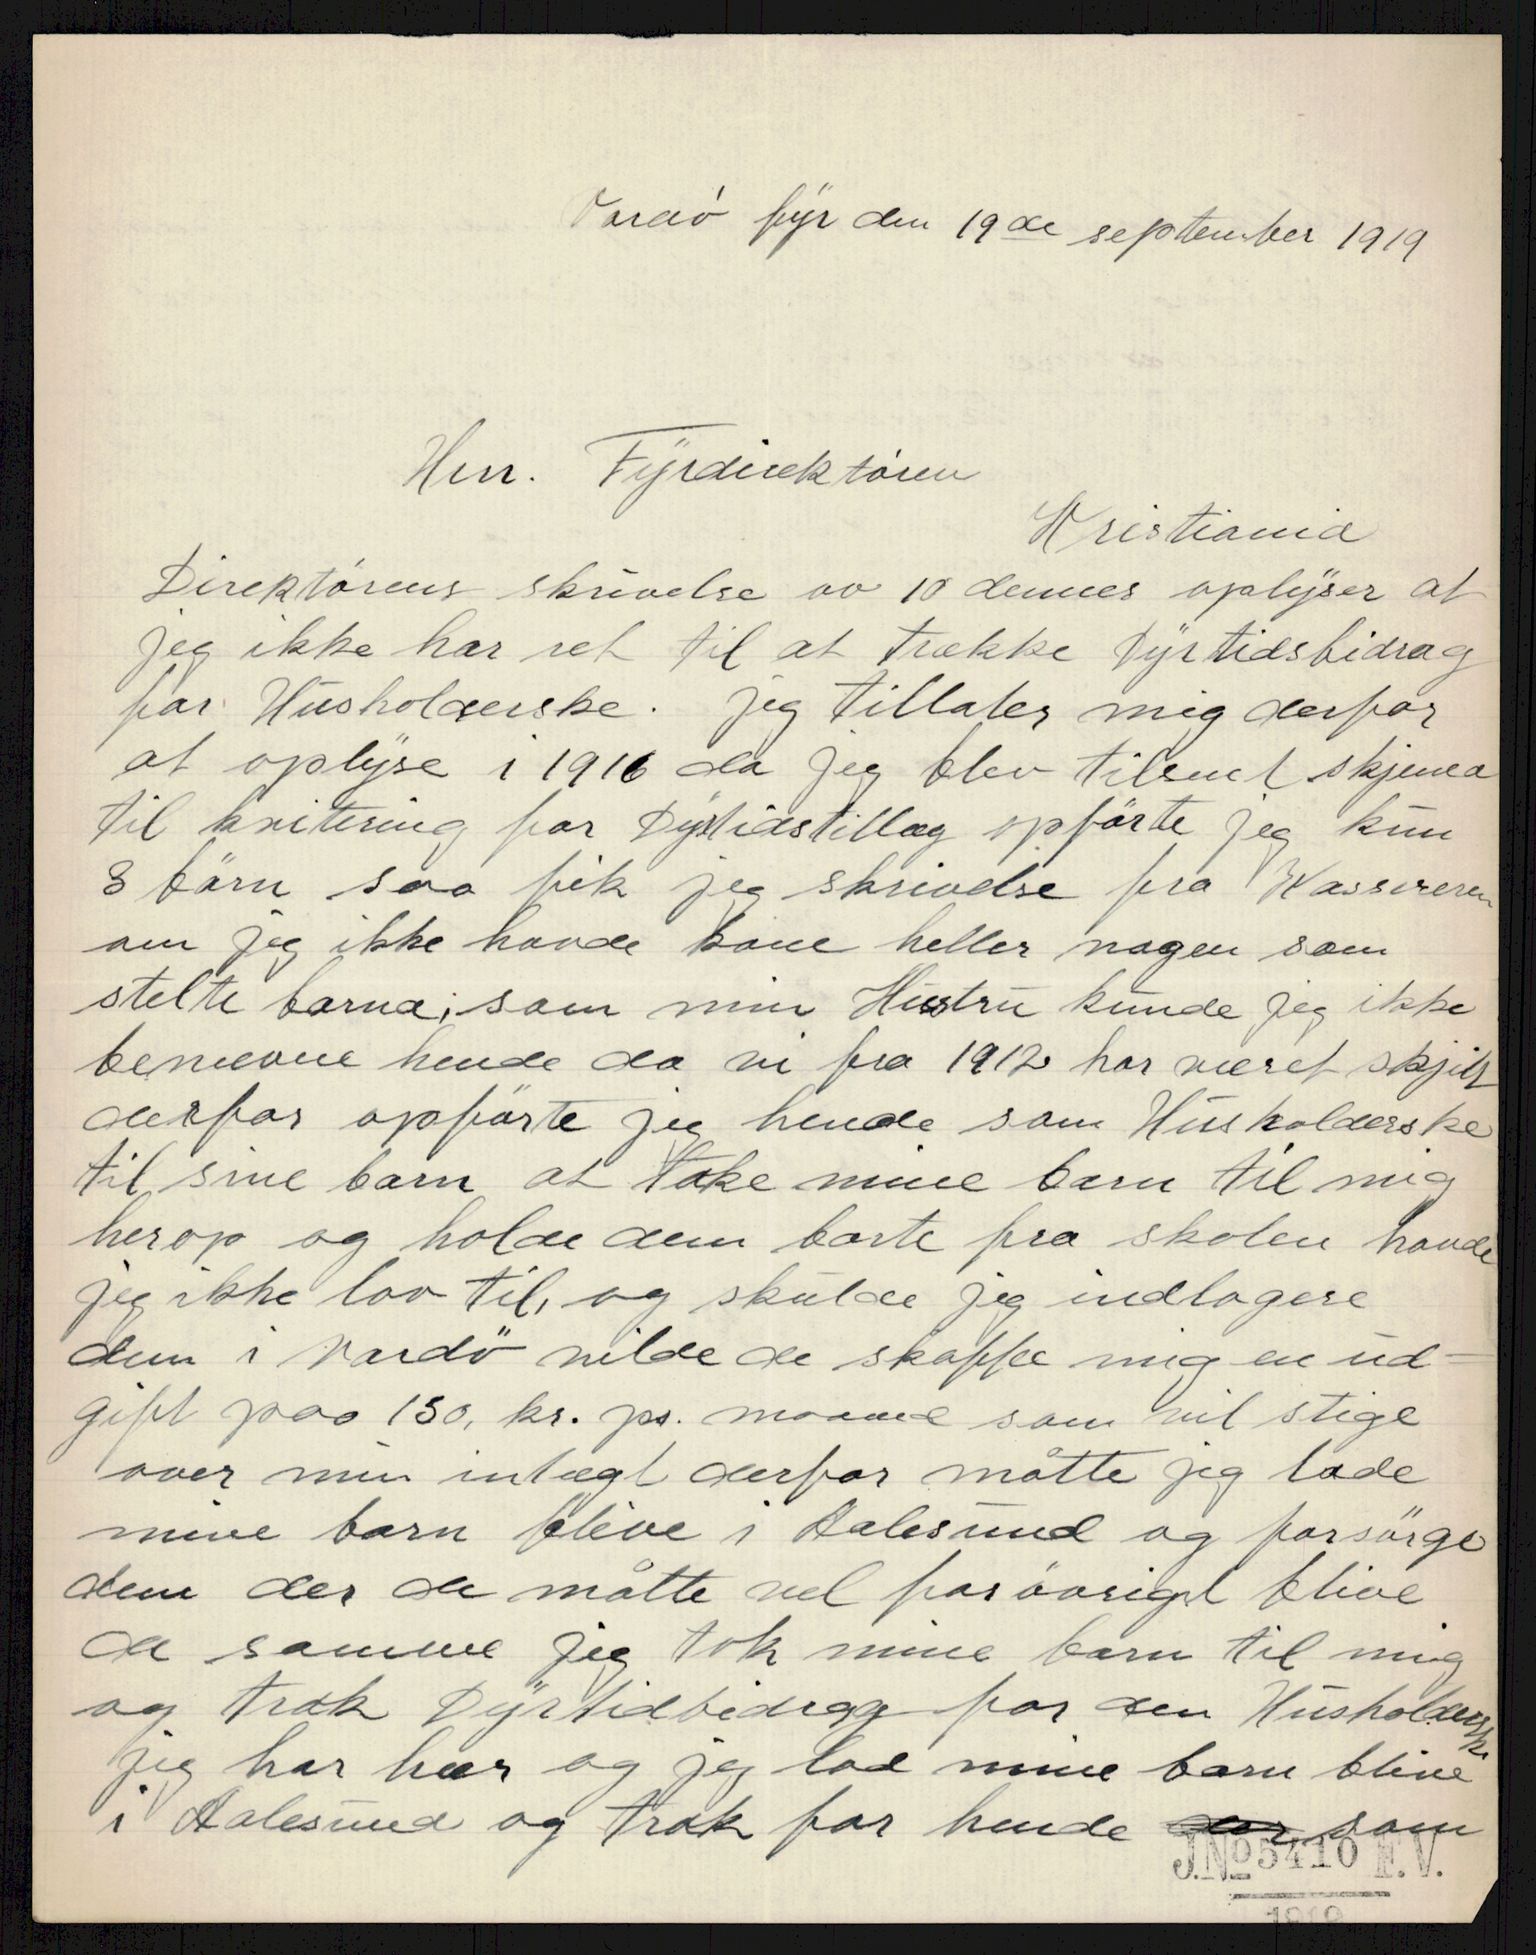 Vardö fyr den 19de september 1919
Herr. Fyrdirektören
Kristiania
Direktörens skrivelse av 10 dennes oplyser at
jeg ikke har ret til at trække Dyrtidsbidrag
for Husholderske. jeg tillater mig derfor
at oplyse i 1916 da jeg blev tilsent skjema
til kvitering for Dyrtidstillæg opförte jeg kun
3 börn saa fik jeg skrivelse fra Kassereren
om jeg ikke havde kone heller nogen som
stelte barna, som min Hustru kunde jeg ikke
benævne hende da vi fra 1912 har været skjilt
derfor opförte jeg hende som Husholderske
til sine barn at take mine barn til mig
herop og holde dem borte fra skolen havde
jeg ikke lov til, og skulde jeg indlogere
dem i Vardö vilde de skaffe mig en ud-
gift paa 150, kr. pr. maaned som vil stige
over min intægt derfor måtte jeg lade
mine barn blive i Aalesund og forsörge
dem der de måtte vel forövrigt blive
de samme jeg tok mine barn til mig
og trak Dyrtidbidrag for den Husholderske
jeg har her og jeg lod mine barn blive
i Aalesund og trak for hende som
J.No 5410 F.V.
1919